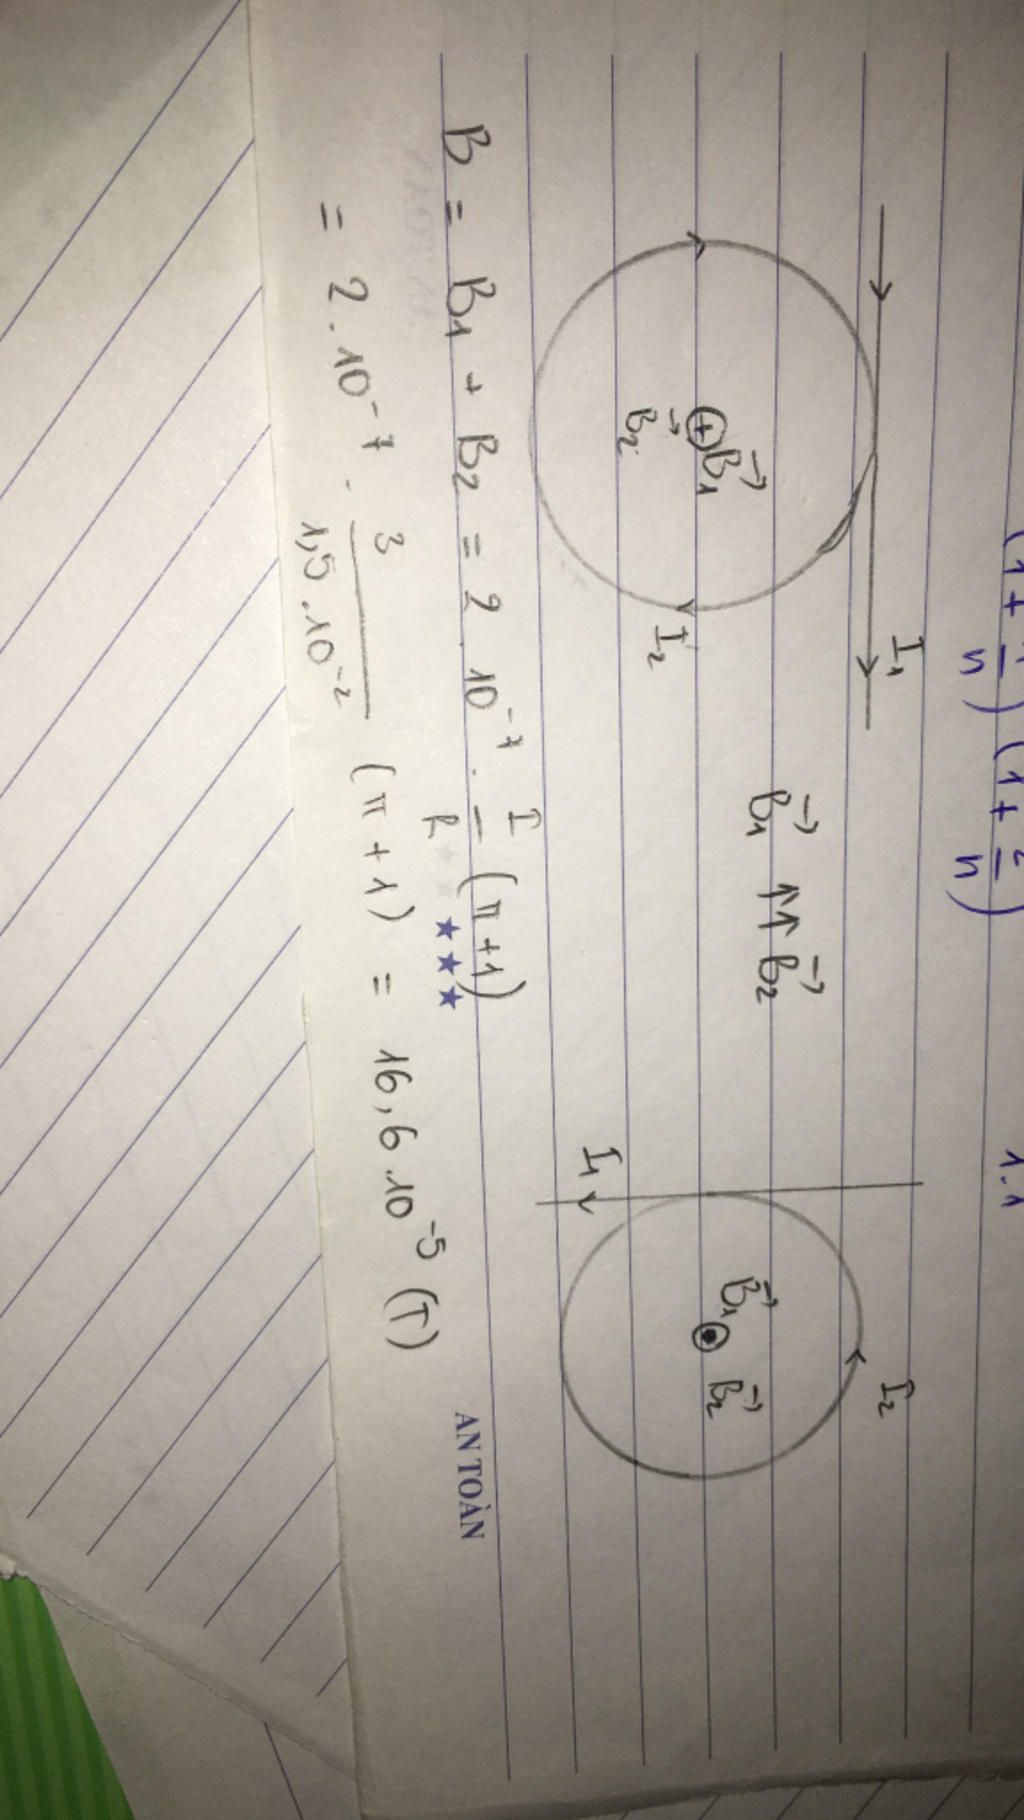 (1 + 1/n) (1 + 2/n) 1.1
I₁
I₂
B₁⃗ ⊕ B₂⃗
I₂
B₁⃗ ↑↑ B₂⃗
B₁⃗ ⊙ B₂⃗
I₁
B = B₁ + B₂ = 2 . 10⁻⁷ . I/R (π + 1)
= 2 . 10⁻⁷ . 3/(1,5 . 10⁻²) (π + 1) = 16,6 . 10⁻⁵ (T)
★★★
AN TOÀN